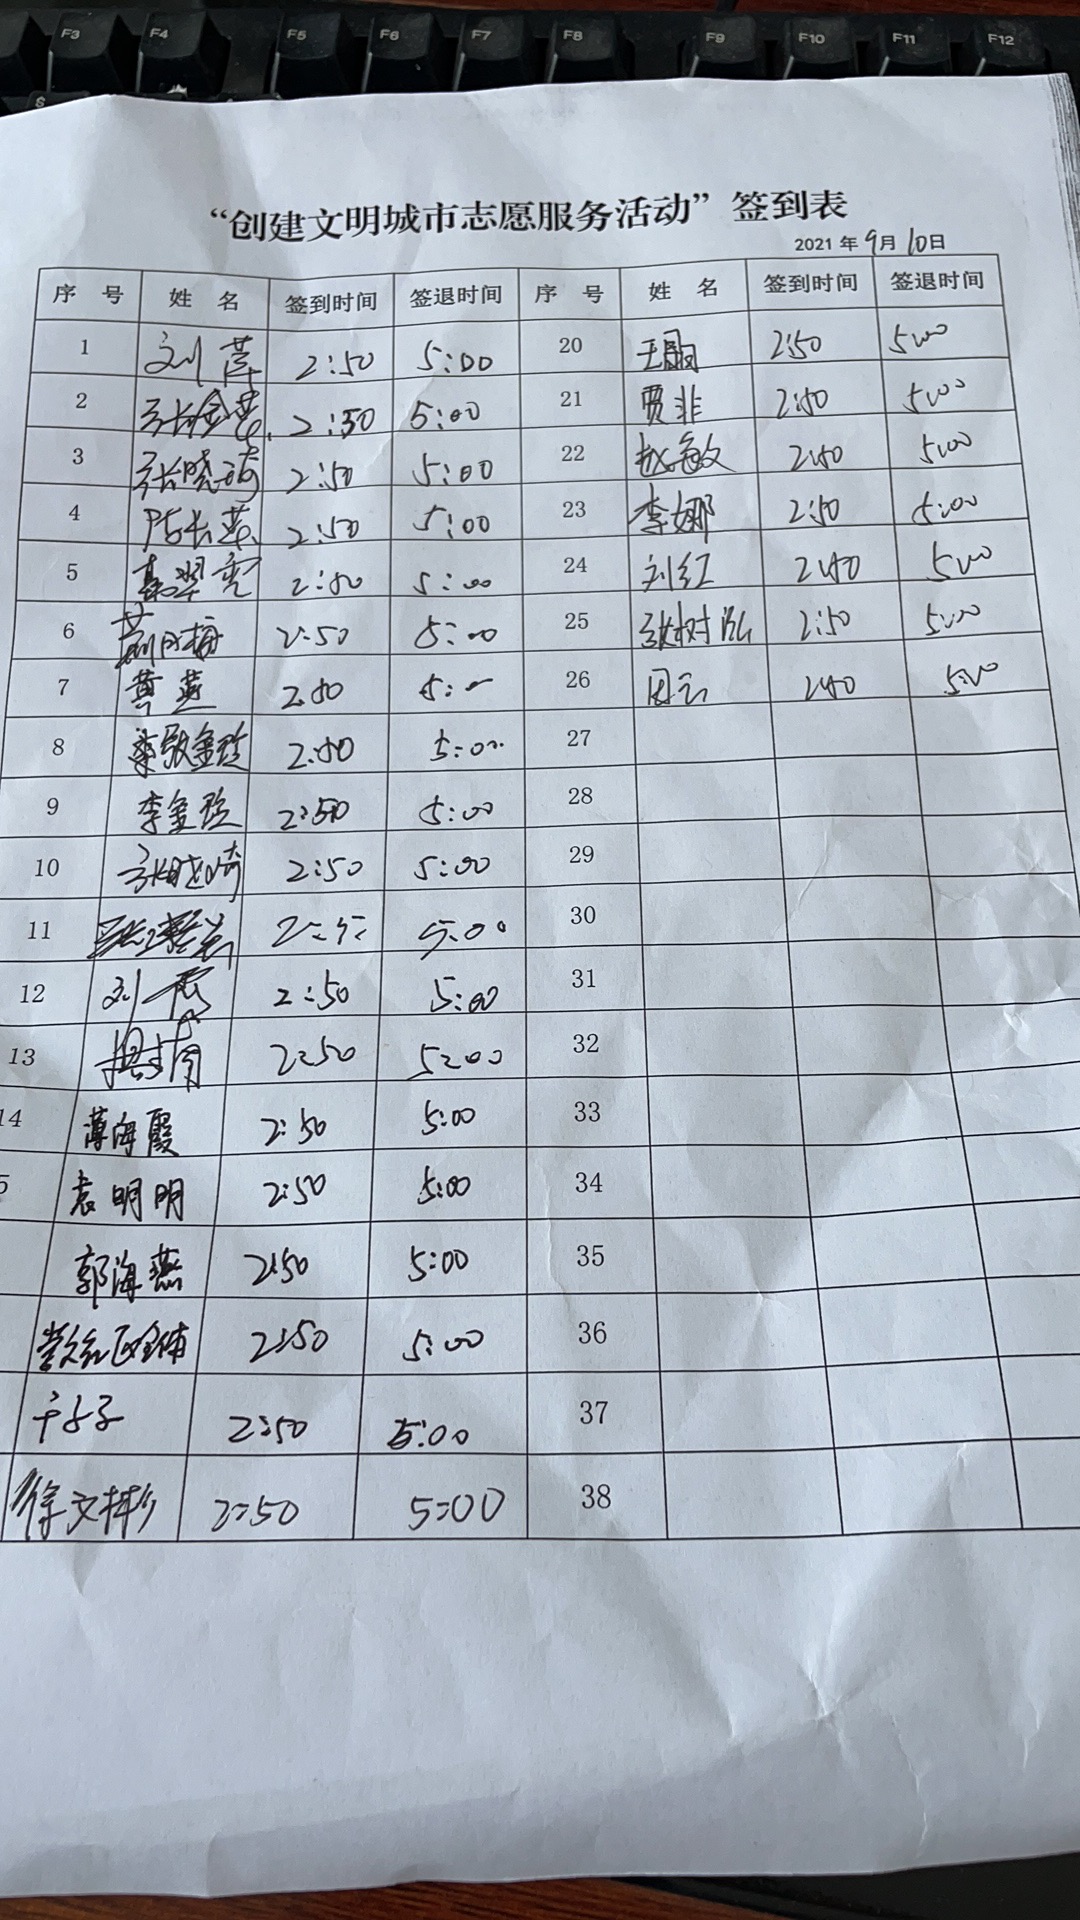 F3 F4 F5 F6 F7 F8 F9 F10 F11 F12
$
“创建文明城市志愿服务活动”签到表
2021 年 9月 10日
序 号 姓 名 签到时间 签退时间 序 号 姓 名 签到时间 签退时间
1 刘萍 2:50 5:00 20 2:50 5:00
2 2:50 5:00 21 贾非 2:50 5:00
3 张晓琦 2:50 5:00 22 赵敏 2:50 5:00
4 陈长燕 2:50 5:00 23 李娜 2:50 5:00
5 2:50 5:00 24 刘红 2:50 5:00
6 2:50 5:00 25 张树泓 2:50 5:00
7 黄燕 2:50 5: 26 周云 2:50 5:00
8 2:50 5:00 27
9 李金玲 2:50 5:00 28
10 张晓琦 2:50 5:00 29
11 5:00 30
12 刘霞 2:50 5:00 31
13 2:50 5:00 32
14 薄海霞 2:50 5:00 33
5 袁明明 2:50 5:00 34
郭海燕 2:50 5:00 35
2:50 5:00 36
2:50 5:00 37
徐文彬 2:50 5:00 38